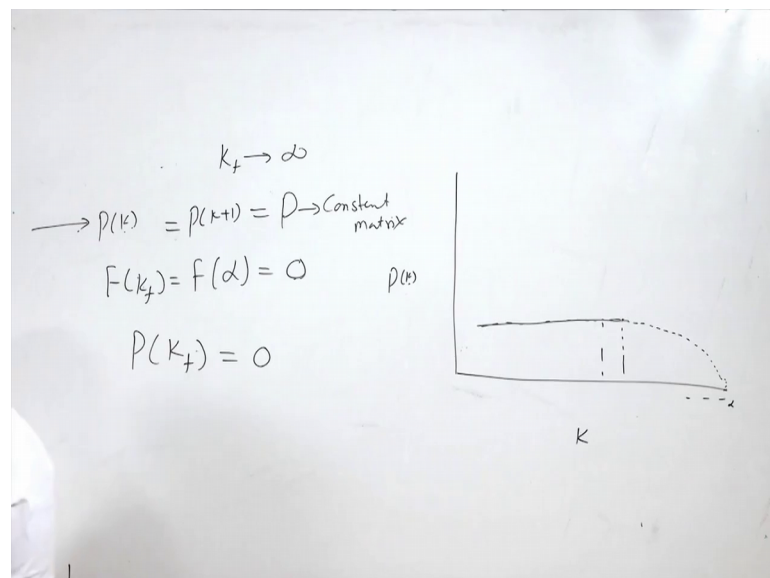 k_f → ∞
→ P(k) = P(k+1) = P → Constant matrix
F(k_f) = F(∞) = 0
P(k_f) = 0
P(k)
∞
K